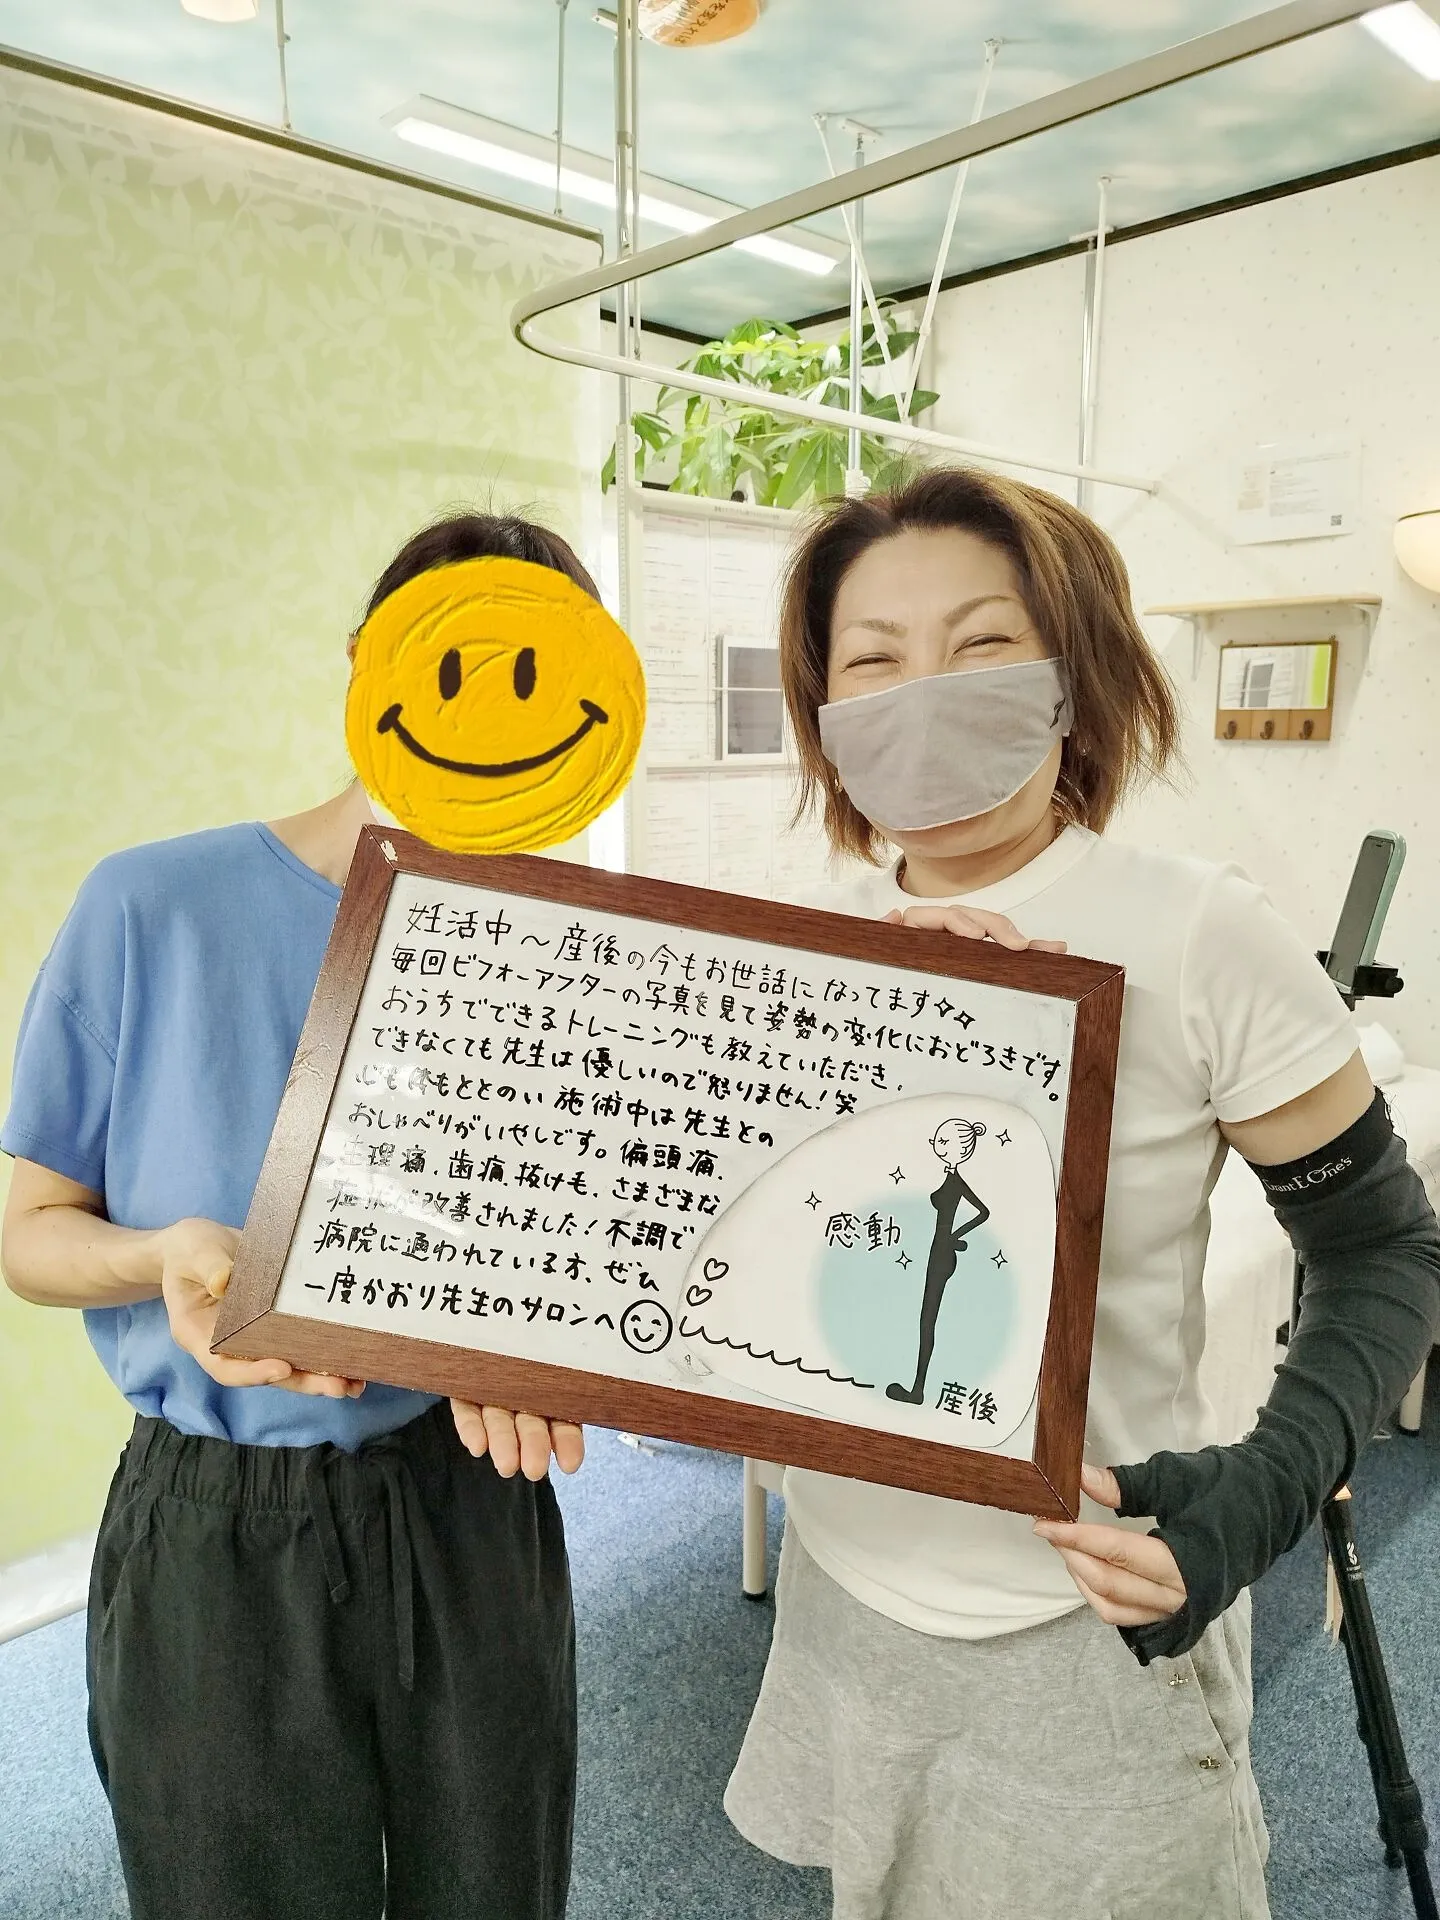 妊活中～産後の今もお世話になってます✧✧
毎回ビフォーアフターの写真を見て姿勢の変化におどろきです。
おうちでできるトレーニングも教えていただき、
できなくても先生は優しいので怒りません!笑
心も体もととのい施術中は先生との
おしゃべりがいやしです。偏頭痛、
生理痛、歯痛、抜け毛、さまざまな
症状が改善されました!不調で
病院に通われている方、ぜひ
一度かおり先生のサロンへ
感動
産後
GrantEOne's